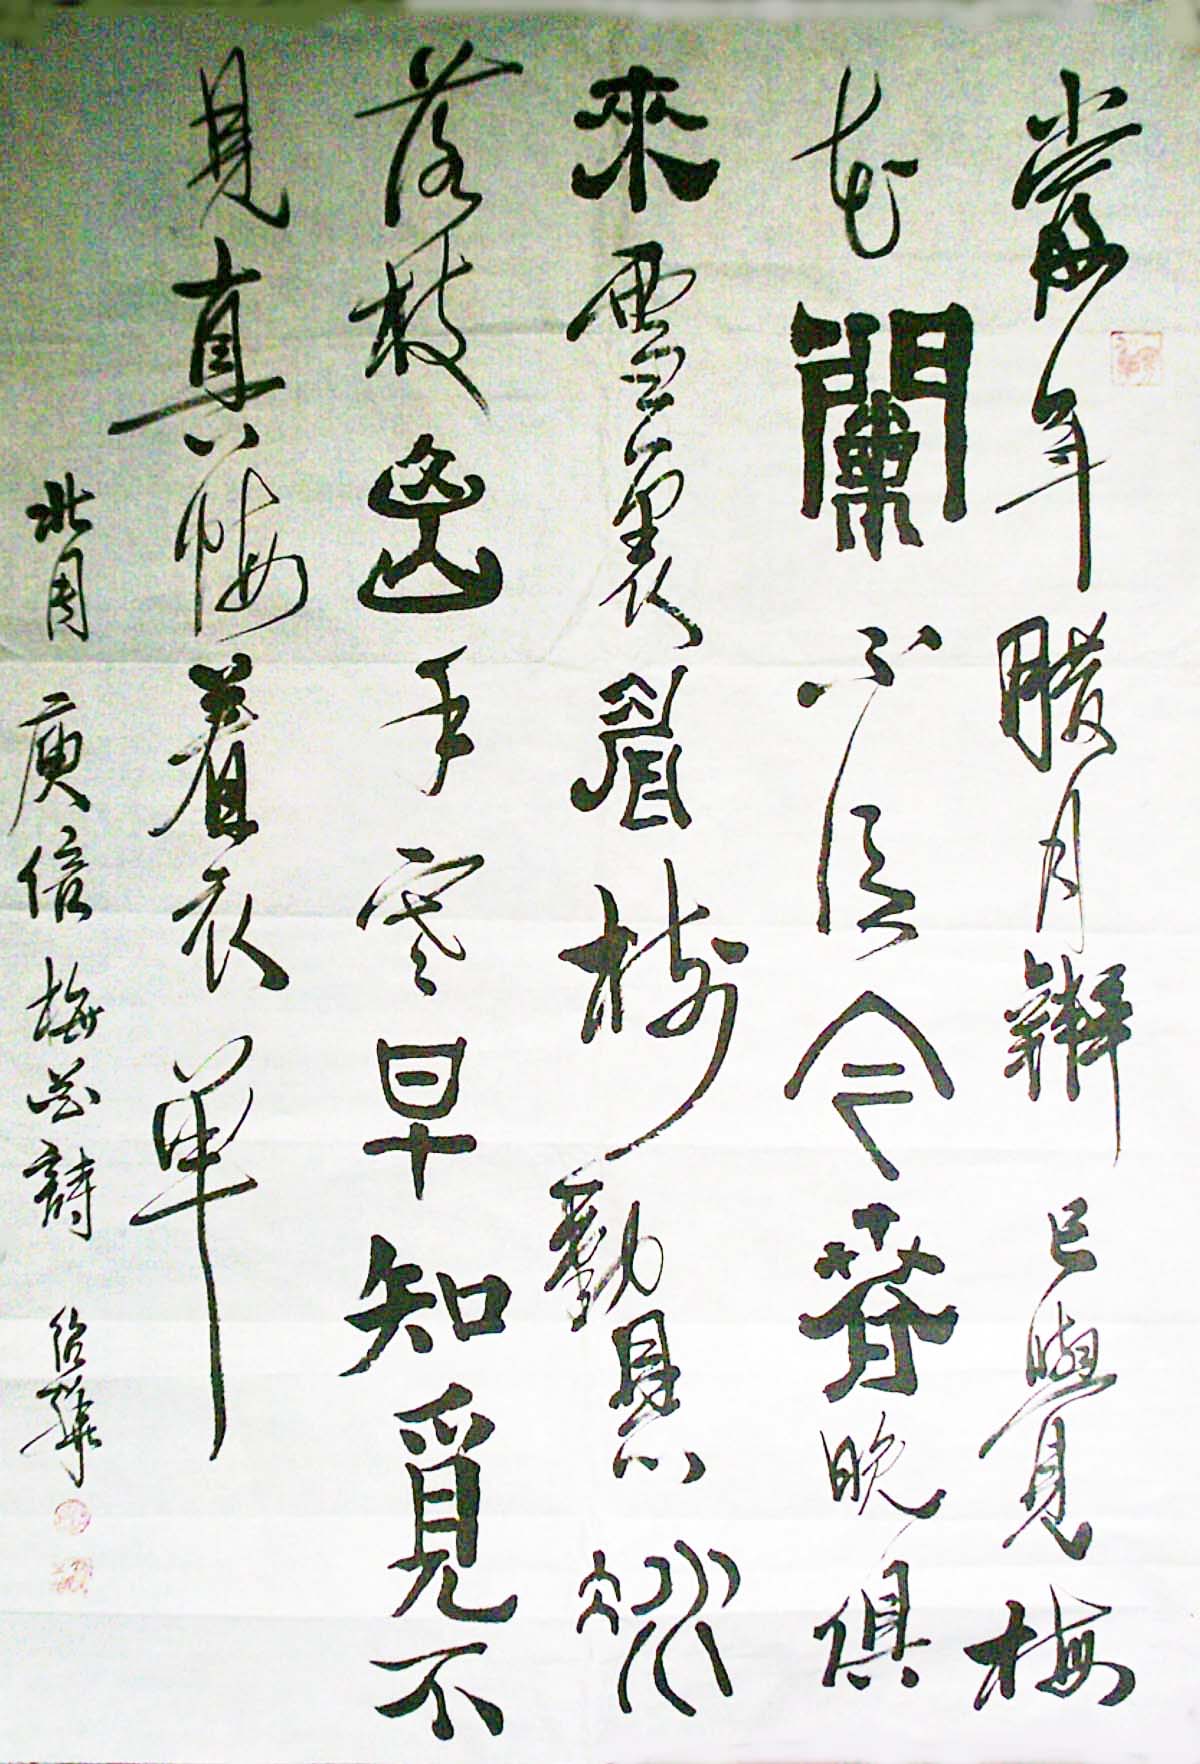 當年臘月 已覺梅
花闌不信今春晚俱
來雪裏看樹動懸冰
落枝出手寒早知覓不
見真悔着衣單
北周 庾信 梅花詩 紹華